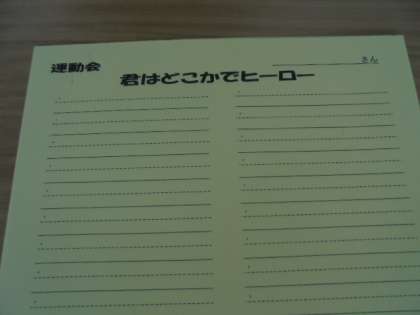 運動会
さん
君はどこかでヒーロー